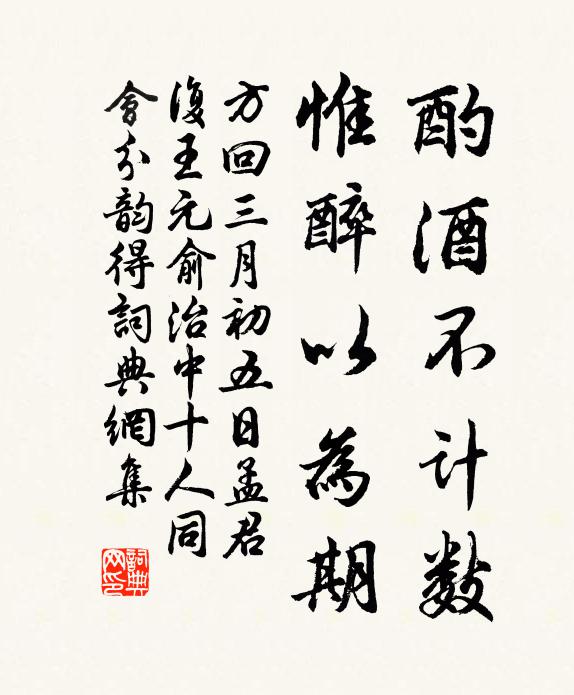 酌酒不计数
惟醉以為期
方回三月初五日孟君
復王元俞治中十人同
會分韵得詞典網集
詞典
网印